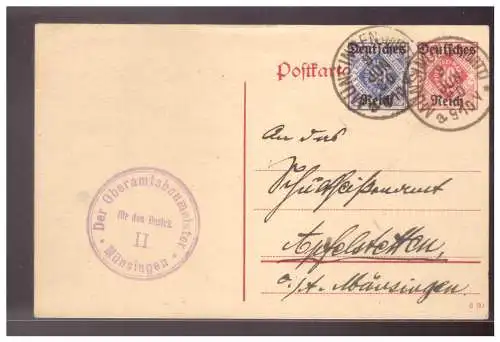 Postkarte
Deutsches
Reich
Deutsches
Reich
MÜNSINGEN
MÜNSINGEN
An das
Schultheißenamt
Apfelstetten,
O/A. Münsingen.
Der Oberamtsbaumeister
für den Bezirk
II
Münsingen